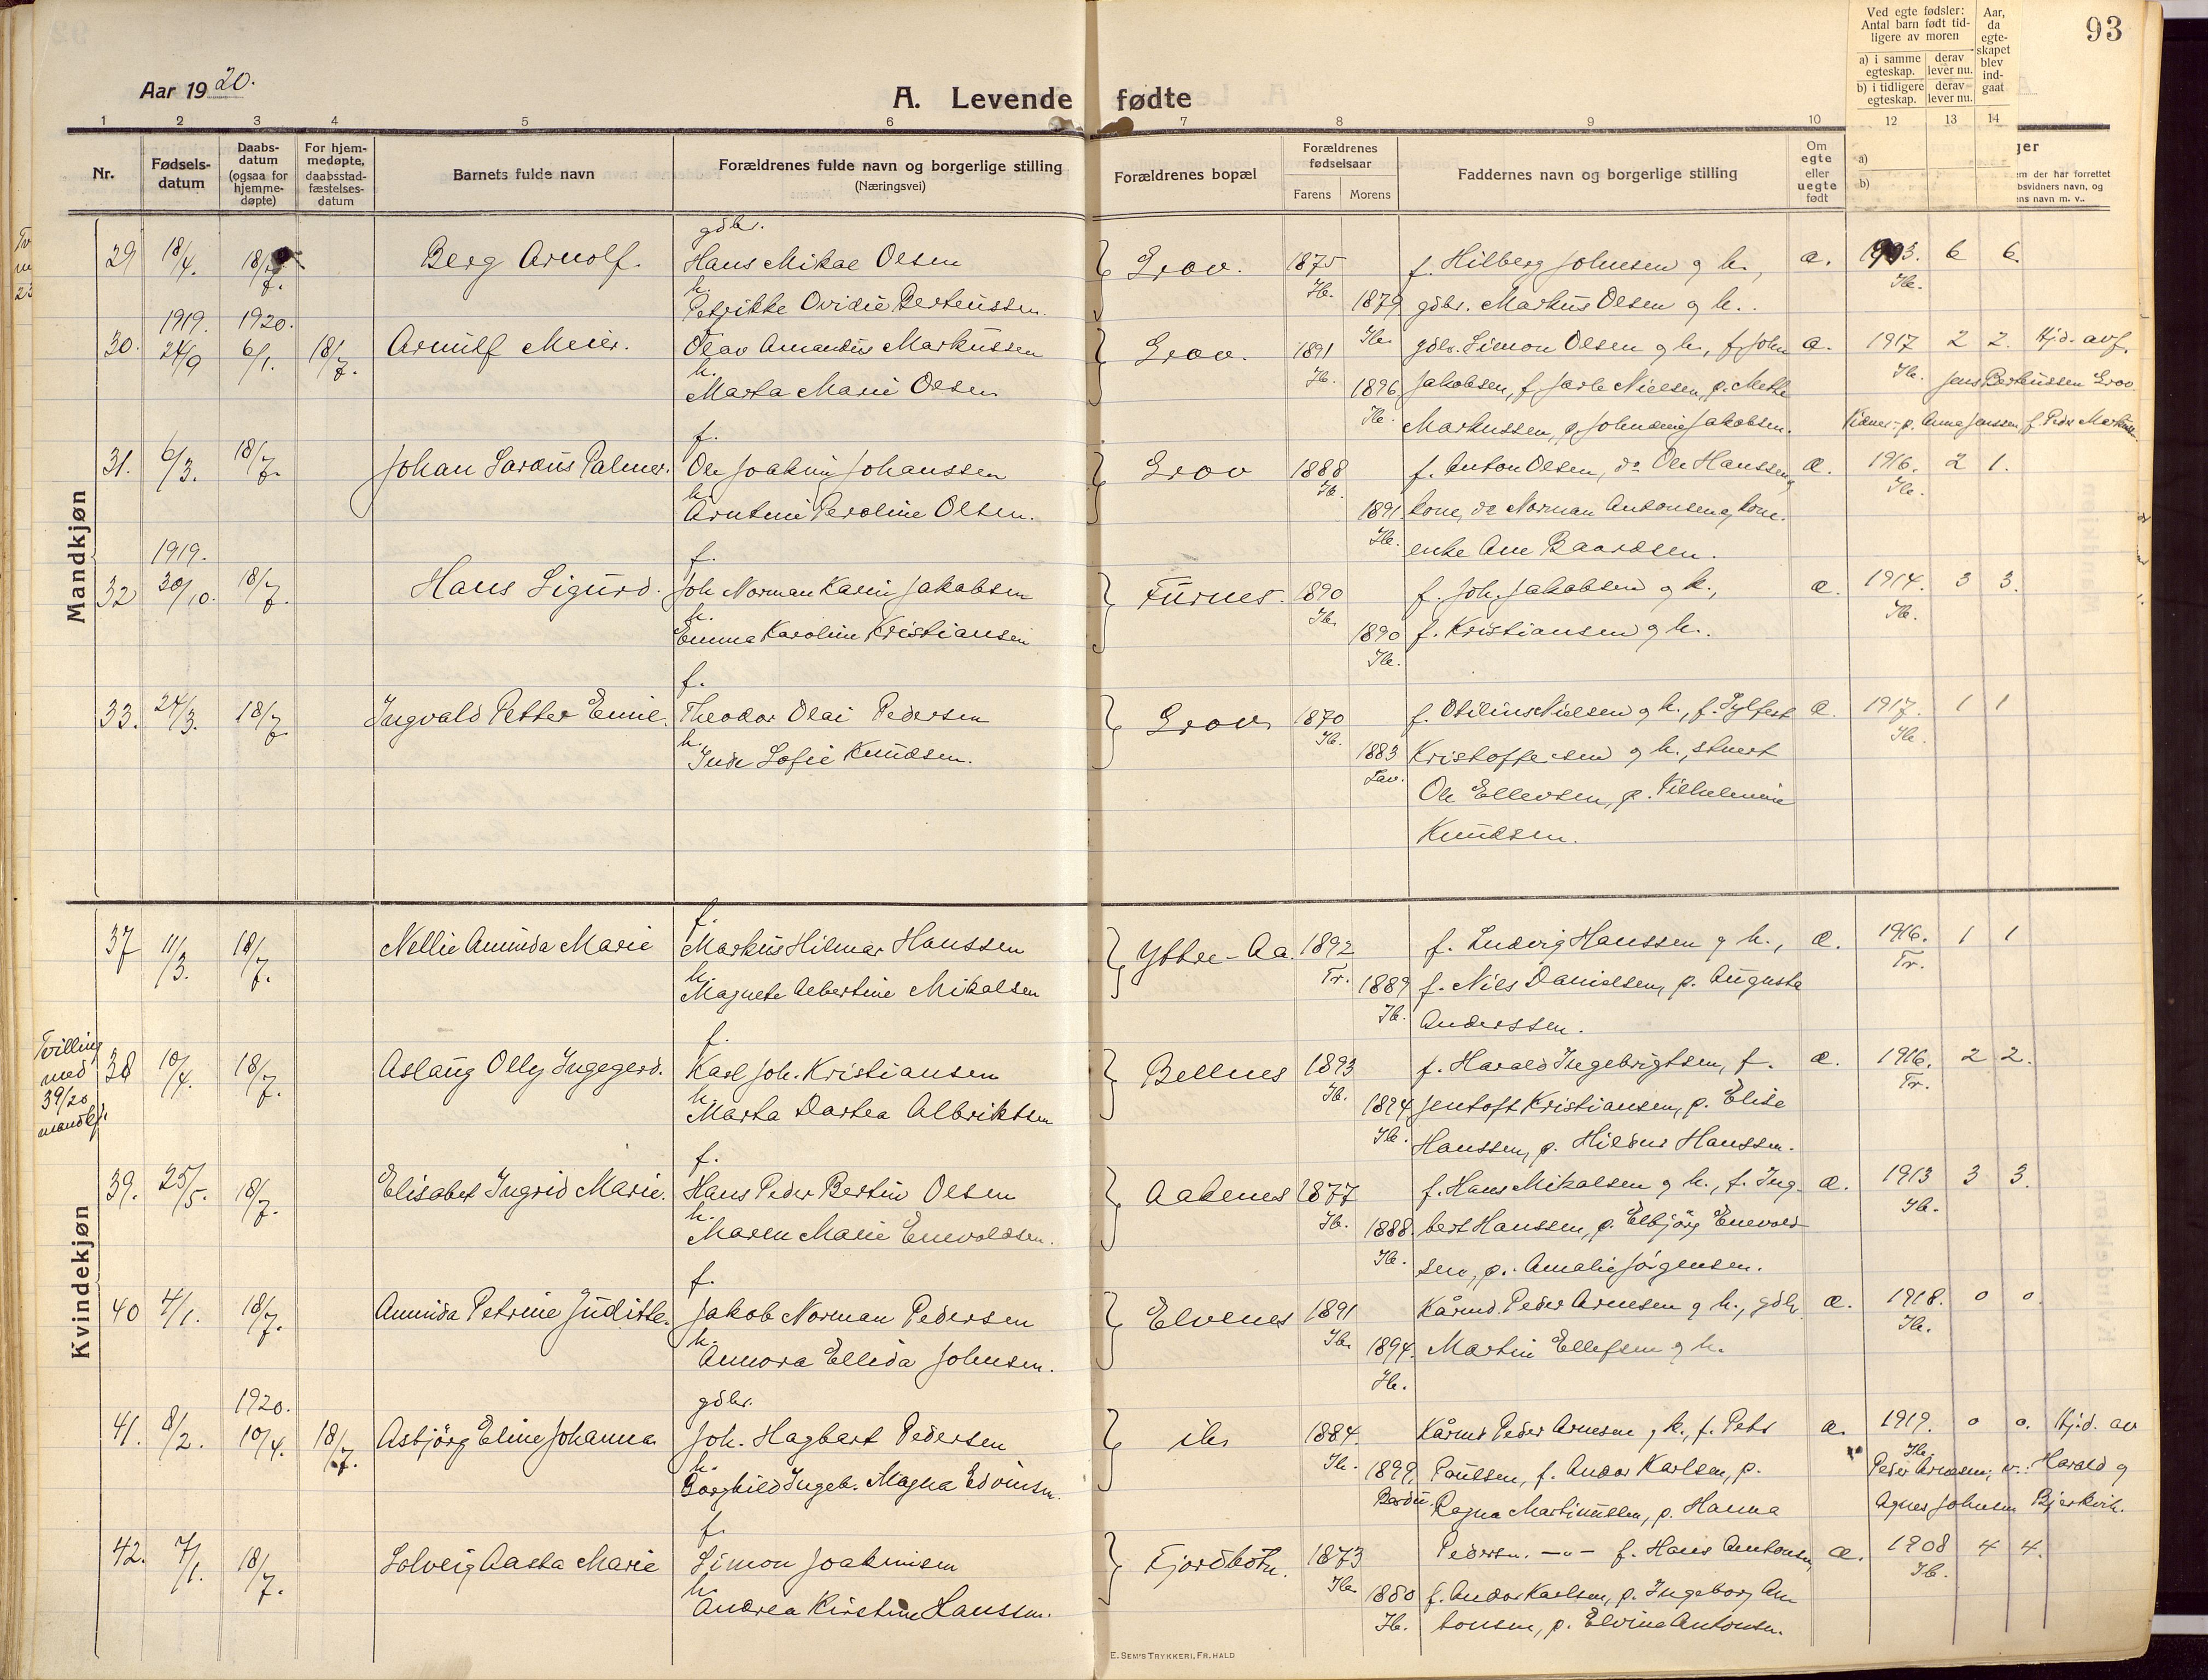 93
Aar 1920.
A. Levende fødte
1 2 3 4 5 6 7 8 9 10 12 13 14
Nr.
Fødsels-datum
Daabs-datum (ogsaa for hjemme-døpte)
For hjem-medøpte, daabsstad-fæstelses-datum
Barnets fulde navn
Forældrenes fulde navn og borgerlige stilling
(Næringsvei)
Forældrenes bopæl
Forældrenes fødselsaar
Farens Morens
Faddernes navn og borgerlige stilling
Om egte eller uegte født
Ved egte fødsler: Antal barn født tid-ligere av moren
a) i samme egteskap. derav lever nu.
b) i tidligere egteskap. derav lever nu.
Aar, da egte-skapet blev ind-gaat
a)
b)
Mandkjøn
29 18/4. 18/7. Berg Arnolf. gdbr. Grov. 1875 f. Hilberg Johnsen og h., æ. 6 6.
Hans Mikal Olsen Ib.
h. Petrikke Ovidie Berteussen. 1879 gdbr. Markus Olsen og h.. Ib.
1919. 1920.
30. 24/9 6/1. 18/7. Arnulf Meier. Olav Amandus Markussen Grov. 1891 gdbr. Simon Olsen og h., f. John æ. 1917 2 2. Hjd. av f.
h. Marta Marie Olsen Ib. 1896 Jakobsen, f. Jarle Nielsen, p. Meth Ib. Jens Berteussen Grov
Ib. Markussen, p. Jakobsen. p. Anna Jenssen, f. Peder
f.
31. 6/3. 18/7. Johan Laraus Palmer. Ole Joakim Johanssen Grov 1888 f. Anton Olsen, do Ole Hanssen æ. 1916. 2 1.
h. Arntine Peroline Olsen. Ib. 1891 kone, do Norman Antonsen og kone. Ib.
Ib. enke Ane Baardsen.
1919. f.
32 30/10. 18/7. Hans Sigurd. Joh. Norman Karin Jakobsen Furnes. 1890 f. Joh. Jakobsen og h., æ. 1914. 3 3.
h. Emma Karoline Kristiansen Ib. 1890 f. Kristiansen og h.. Ib.
Ib.
f.
33. 24/3. 18/7. Ingvald Petter Emil. Theodor Olai Pedersen Grov 1870 f. Otilius Nielsen og h., f. Sylfest æ. 1917. 1 1
h. Inde Sofie Knudsen. Ib. 1883 Kristoffersen og h., Ib.
Lav. Ole Ellevsen, p. Vilhelmine
Knudsen.
Kvindekjøn
f.
37 11/3. 18/7. Nellie Aminda Marie Markus Hilmar Hanssen Yttre-Aa. 1892 f. Ludvig Hanssen og h., æ. 1916. 1 1
h. Magnete Albertine Mikalsen Tr. 1889 f. Nils Danielsen, p. Augusta Tr.
Ib. Anderssen.
Tvilling med 39/20 mandkj.
f.
38 10/4. 18/7. Aslaug Olly Ingegerd. Karl Joh. Kristiansen Bellnes 1893 f. Harald Ingebrigtsen, f. æ. 1916. 2 2.
h. Marta Dortea Albriktsen Ib. 1894 Jentoft Kristiansen, p. Elise Tr.
Ib. Hanssen, p. Hildur Hanssen.
f.
39. 25/5. 18/7. Elisabet Ingrid Marie. Hans Peder Bertin Olsen Aakenes 1877 f. Hans Mikalsen og h., f. Ing- æ. 1913 3 3.
h. Maren Marie Enevoldsen. Ib. 1888. bert Hanssen, p. Elbjörg Enevold- Ib.
Ib. sen, p. Amalie Jörgensen.
f.
40 4/1. 18/7. Aminda Petrine Juditte. Jakob Norman Pedersen Elvenes 1891 Kårmd. Peder Arnesen og h., gdbr. æ. 1918. 0 0.
h. Annora Ellida Johnsen. Ib. 1894. Martin Ellefsen og h. Ib.
Ib.
1920. gdbr.
41. 8/2. 10/4. 18/7. Asbjörg Eline Johanna Joh. Hagbart Pedersen ib. 1884. Kårmd Peder Arnesen og h., f. Petr æ. 1919. 0 0. Hjd. av
h. Borghild Ingeb. Magna Edvinsen. Ib. 1899. Poulsen, f. Andor Karlsen, p. Ib. Peder Arnesen; v.: Harald og
Bardu. Ragna Martinussen, p. Hanna Agnes Johnsen Bjerkvik.
f.
42. 7/1. 18/7. Solveig Aasta Marie Simon Joakimsen Fjordbotn. 1873 Pedersen. —"— f. Hans Antonsen, æ. 1908 4 4.
h. Andrea Kirstine Hanssen. Ib. 1880 f. Andor Karlsen, p. Ingeborg An- Ib.
Ib. tonsen, p. Elvine Antonsen.
E. SEM'S TRYKKERI, FR. HALD